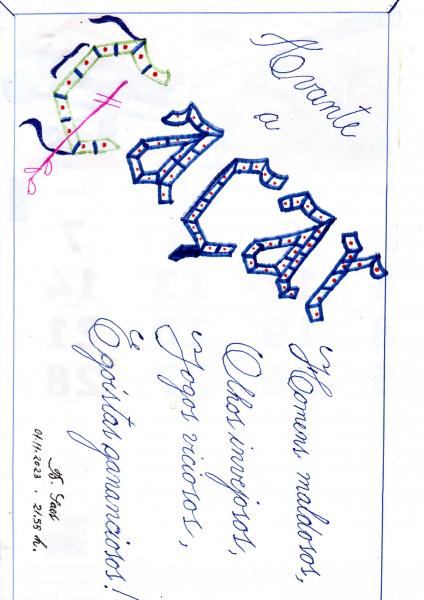 Avante
a
Caçar
Homens maldosos,
Olhos invejosos,
Jogos viciosos,
Egoístas gananciosos!
01.11.2023 . 21.55 h.